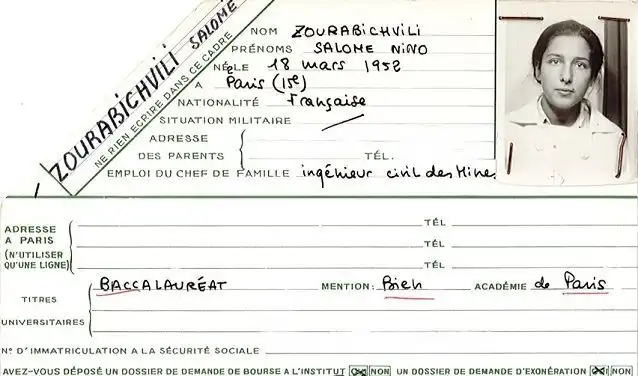 ZOURABICHVILI SALOMÉ
NE RIEN ECRIRE DANS CE CADRE
NOM ZOURABICHVILI
PRÉNOMS SALOME NINO
NÉE LE 18 mars 1952
A Paris (15e)
NATIONALITÉ Française
SITUATION MILITAIRE
ADRESSE
DES PARENTS TÉL.
EMPLOI DU CHEF DE FAMILLE ingénieur civil des Mines
ADRESSE TÉL
A PARIS
(N'UTILISER TÉL
QU'UNE LIGNE) TÉL
BACCALAURÉAT MENTION: Bien ACADÉMIE de Paris
TITRES
UNIVERSITAIRES
N° D'IMMATRICULATION A LA SÉCURITÉ SOCIALE
AVEZ-VOUS DÉPOSÉ UN DOSSIER DE DEMANDE DE BOURSE A L'INSTITUT OUI NON UN DOSSIER DE DEMANDE D'EXONÉRATION OUI NON